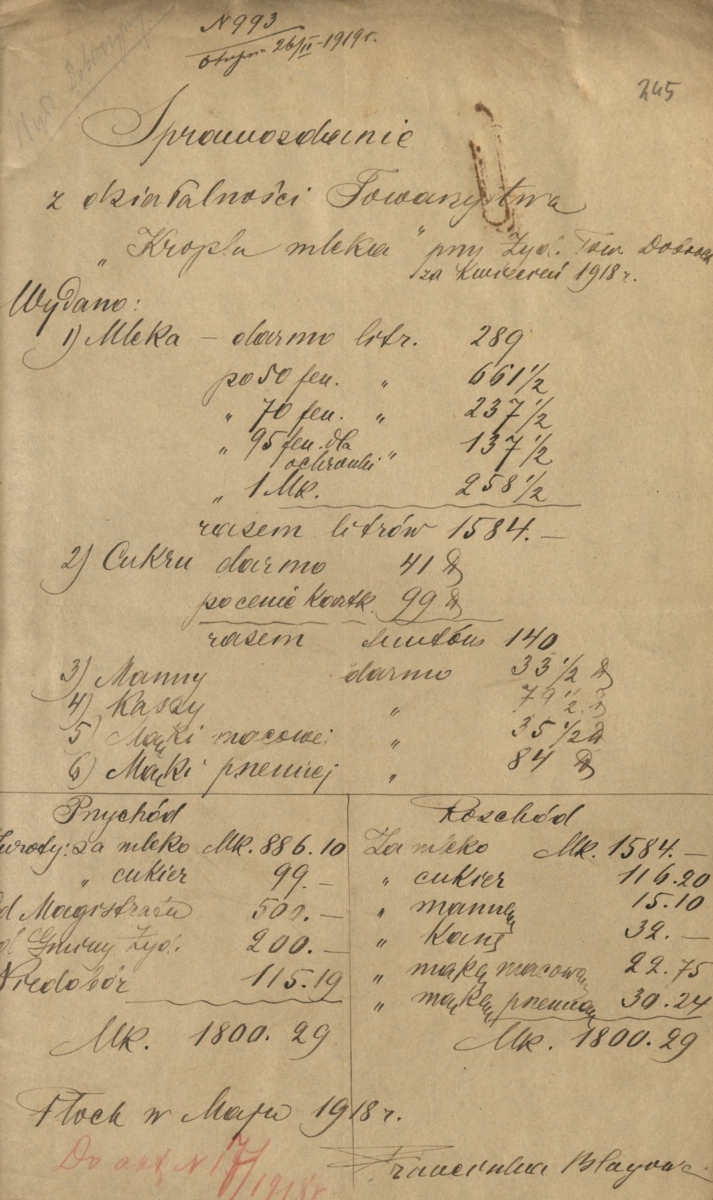 N 993
Otrzym. 26/II-1919 r.
245
Sprawozdanie
z działalności Towarzystwa
„Kropla mleka" przy Żyd. Tow. Dobrocz.
za kwiecień 1918 r.
Wydano:
1) Mleka – darmo litr. 289
po 50 fen. „ 661 1/2
„ 70 fen. „ 237 1/2
„ 95 fen. dla ochronki „ 137 1/2
„ 1 Mk. 258 1/2
razem litrów 1584.–
2) Cukru darmo 41 ℔
po cenie koszt. 99 ℔
razem funtów 140
3) Manny darmo 33 1/2 ℔
4) Kaszy „ 79 1/2 ℔
5) Mąki macowej „ 35 1/2 ℔
6) Mąki pszennej „ 84 ℔
Przychód
Zwroty: za mleko Mk. 886.10
„ cukier 99.–
Od Magistratu 500.–
Od Gminy Żyd. 200.–
Niedobór 115.19
Mk. 1800.29
Rozchód
Za mleko Mk. 1584.–
„ cukier 116.20
„ mannę 15.10
„ kaszę 32.–
„ mąkę macową 22.75
„ mąkę pszenną 30.24
Mk. 1800.29
Płock w Maju 1918 r.
Do akt N 17/1918 r.